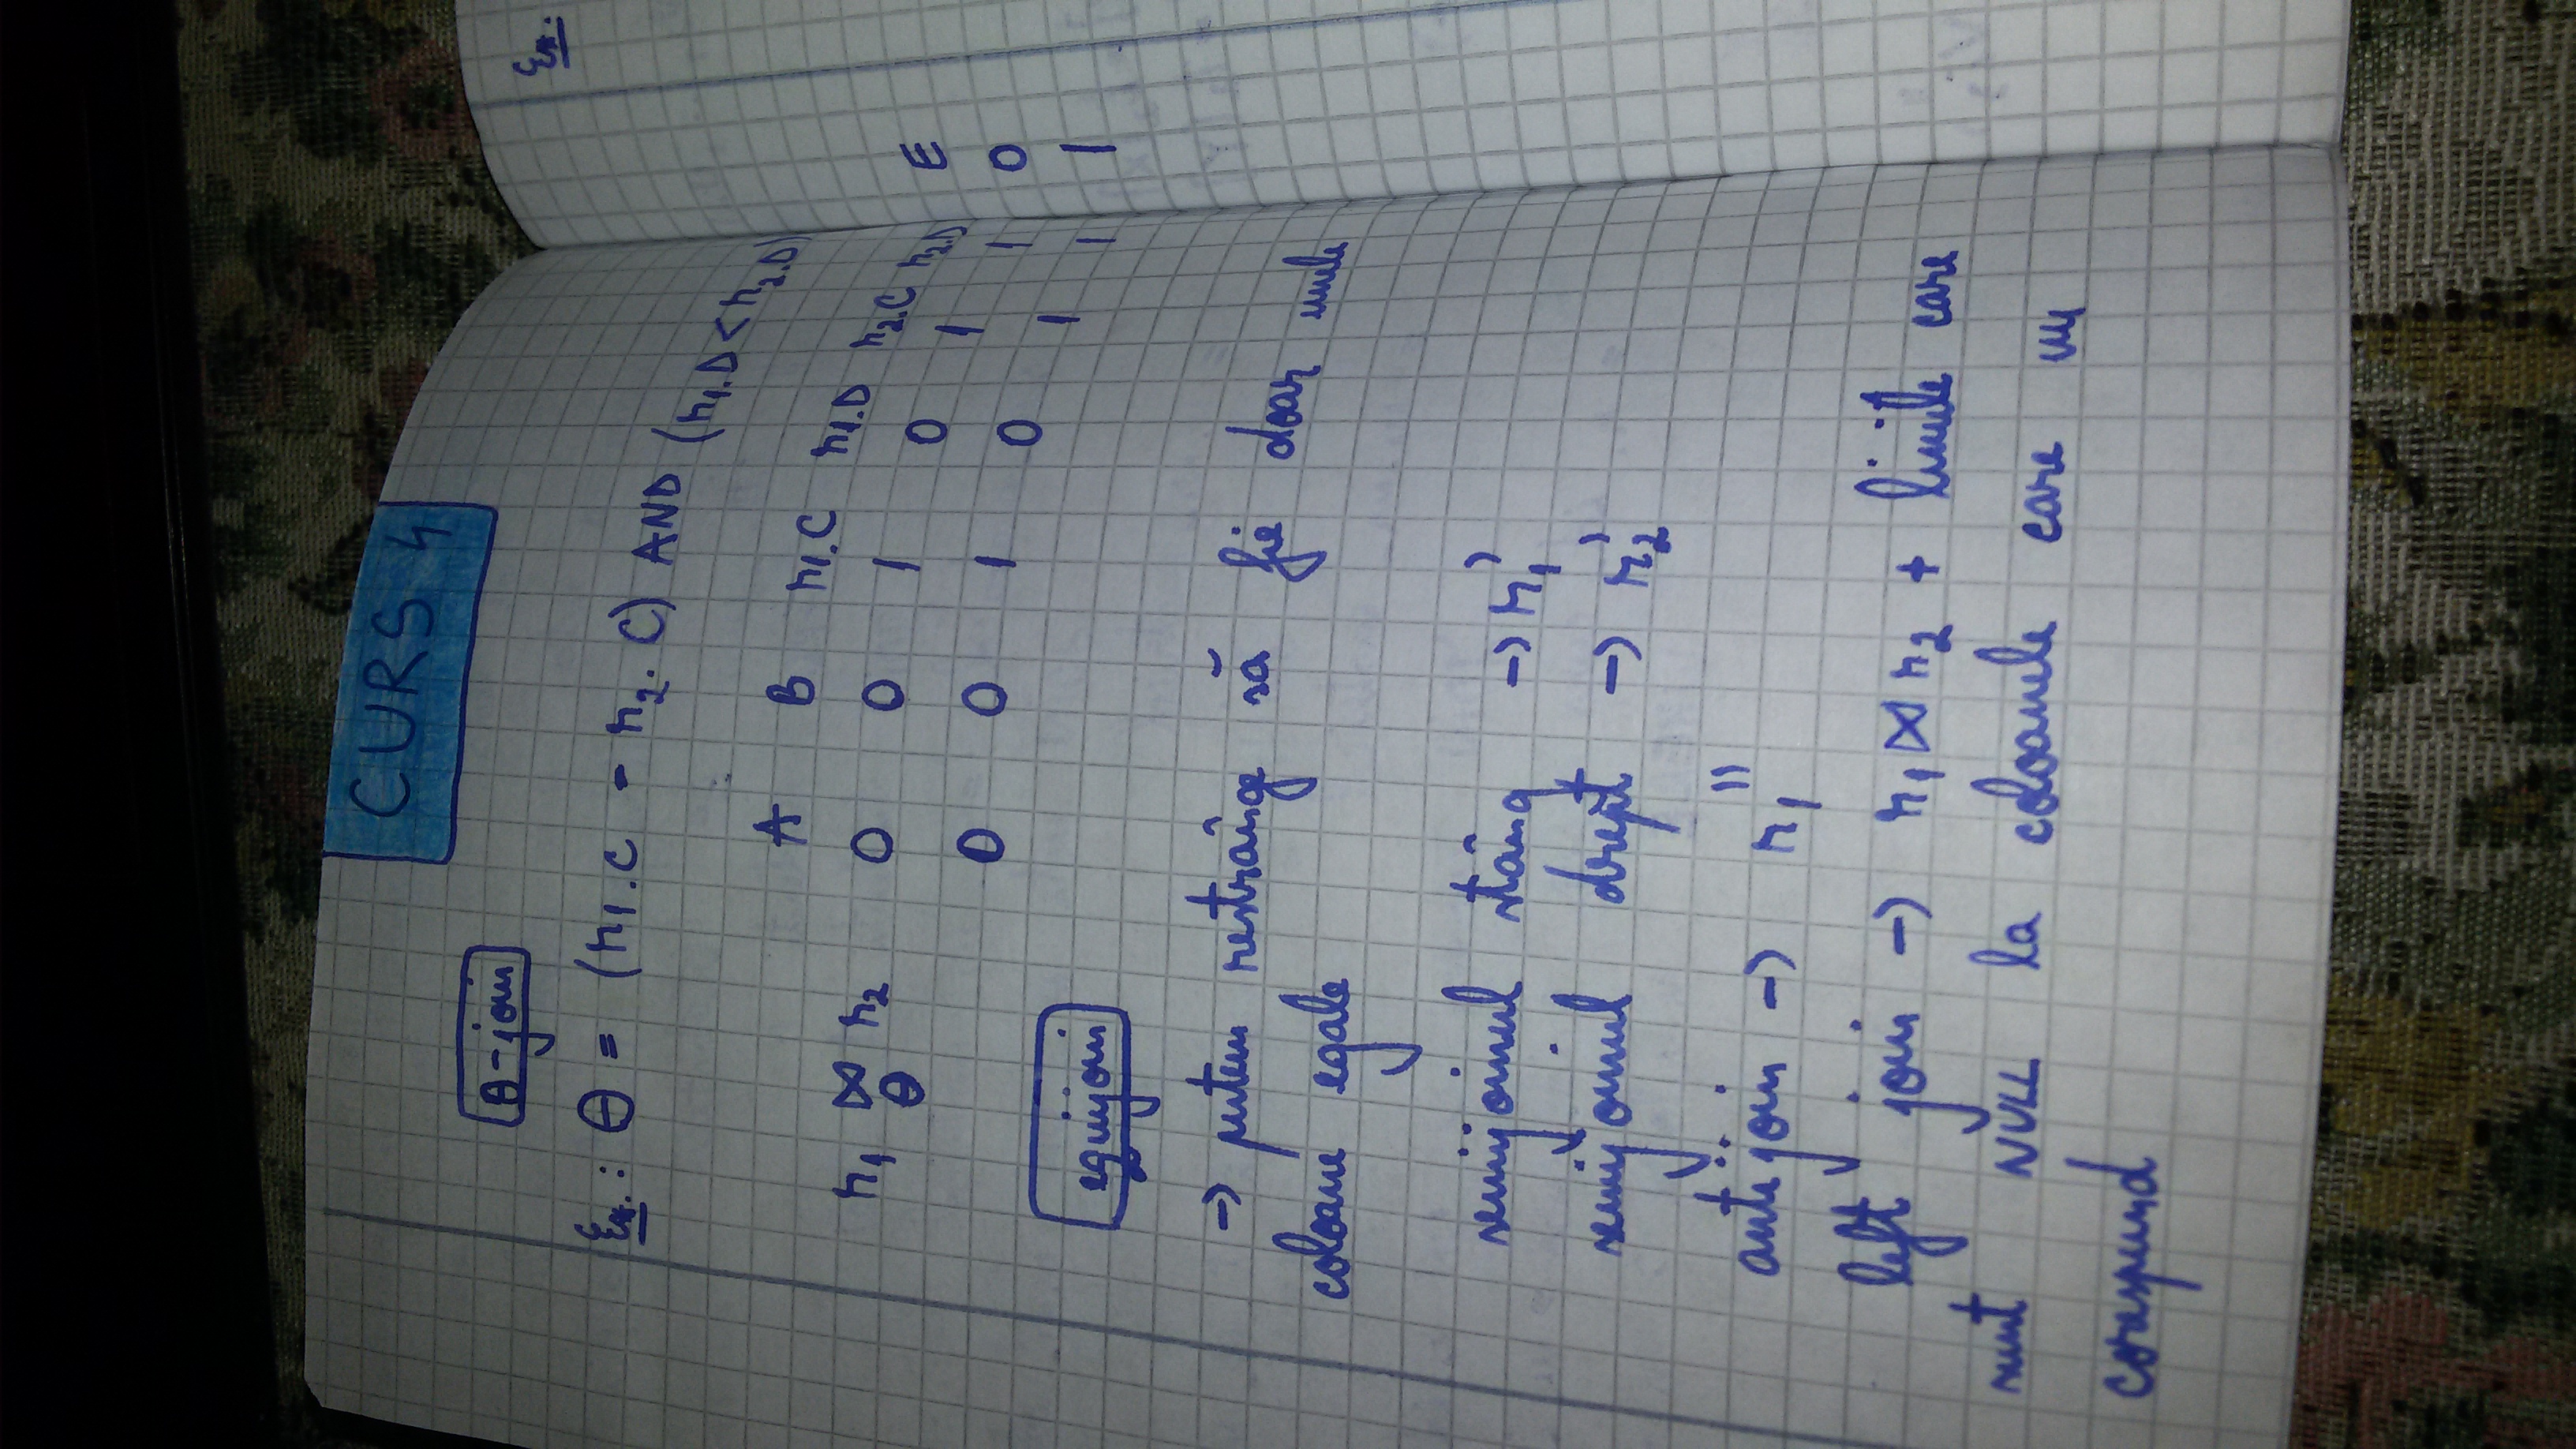 CURS 4
θ-join
Ex.: θ = (r₁.C = r₂.C) AND (r₁.D < r₂.D)
A B r₁.C r₁.D r₂.C r₂.D E
r₁ ⋈θ r₂ 0 0 1 0 1 1 0
0 0 1 0 1 1 1
equijoin
→ putem restrânge să fie doar unele
coloane egale
semijoinul stâng → r₁'
semijoinul drept → r₂'
antijoin → r₁''
left join → r₁ ⋈ r₂ + liniile care
sunt NULL la coloanele care nu
corespund
Ex.